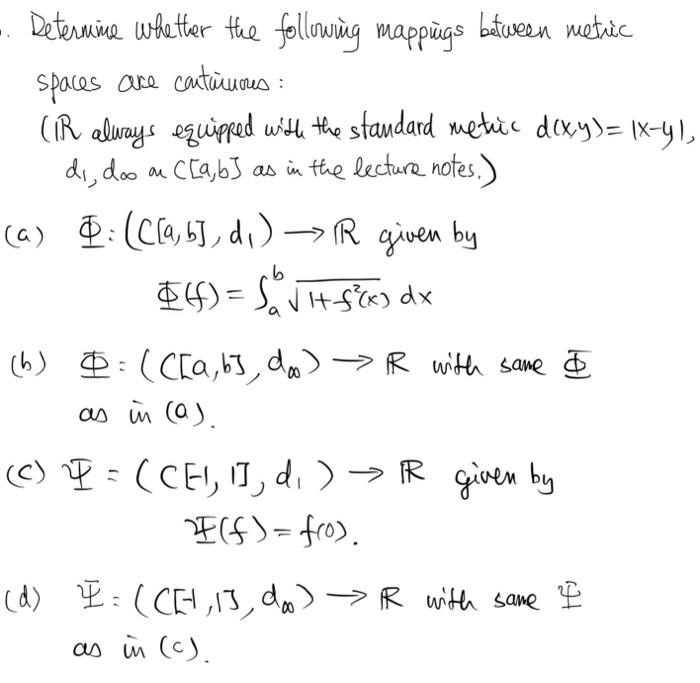 . Determine whether the following mappings between metric
spaces are continuous :
(ℝ always equipped with the standard metric d(x,y)=|x-y|,
d₁, d∞ on C[a,b] as in the lecture notes.)
(a) Φ: (C[a,b], d₁) → ℝ given by
Φ(f) = ∫ₐᵇ √(1+f²(x)) dx
(b) Φ : (C[a,b], d∞) → ℝ with same Φ
as in (a).
(c) Ψ = (C[-1, 1], d₁) → ℝ given by
Ψ(f) = f(0).
(d) Ψ : (C[-1,1], d∞) → ℝ with same Ψ
as in (c).